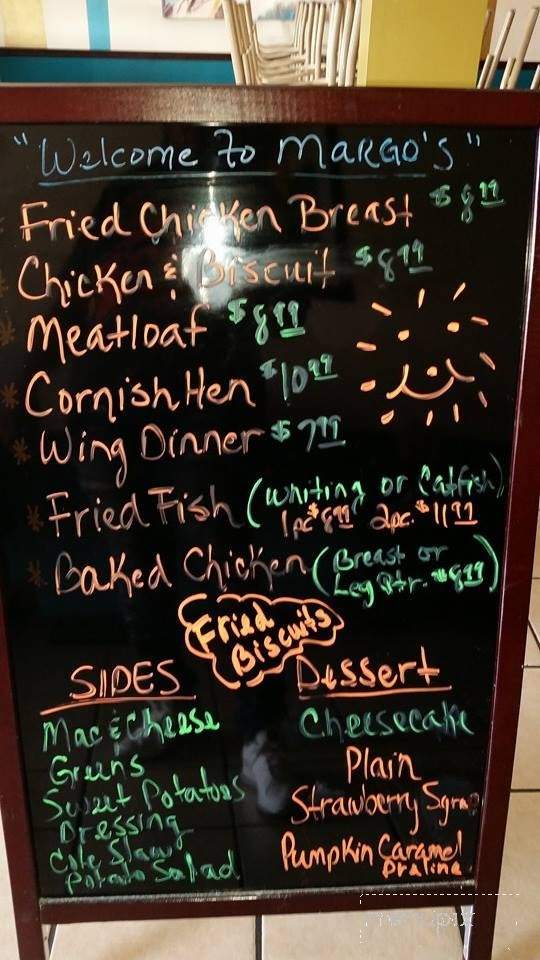 "Welcome To MARGO'S"
Fried Chicken Breast $8.99
Chicken & Biscuit $8.99
Meatloaf $8.99
Cornish Hen $10.99
Wing Dinner $7.99
Fried Fish (Whiting or Catfish)
1pc $8.99 2pc. $11.99
Baked Chicken (Breast or
Leg Qtr. $8.99)
Fried
Biscuits
SIDES
Mac & Cheese
Greens
Sweet Potatoes
Dressing
Cole Slaw
Potato Salad
Dessert
Cheesecake
Plain
Strawberry
Pumpkin Caramel
Praline